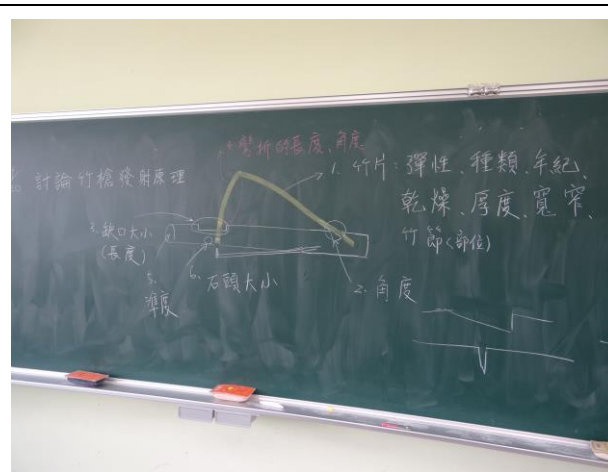 討論竹槍發射原理
4.彎折的長度、角度
1. 竹片：彈性、種類、年紀、
乾燥、厚度、寬窄、
竹節(部位)
3.缺口大小
(長度)
5.
準度
6. 石頭大小
2. 角度